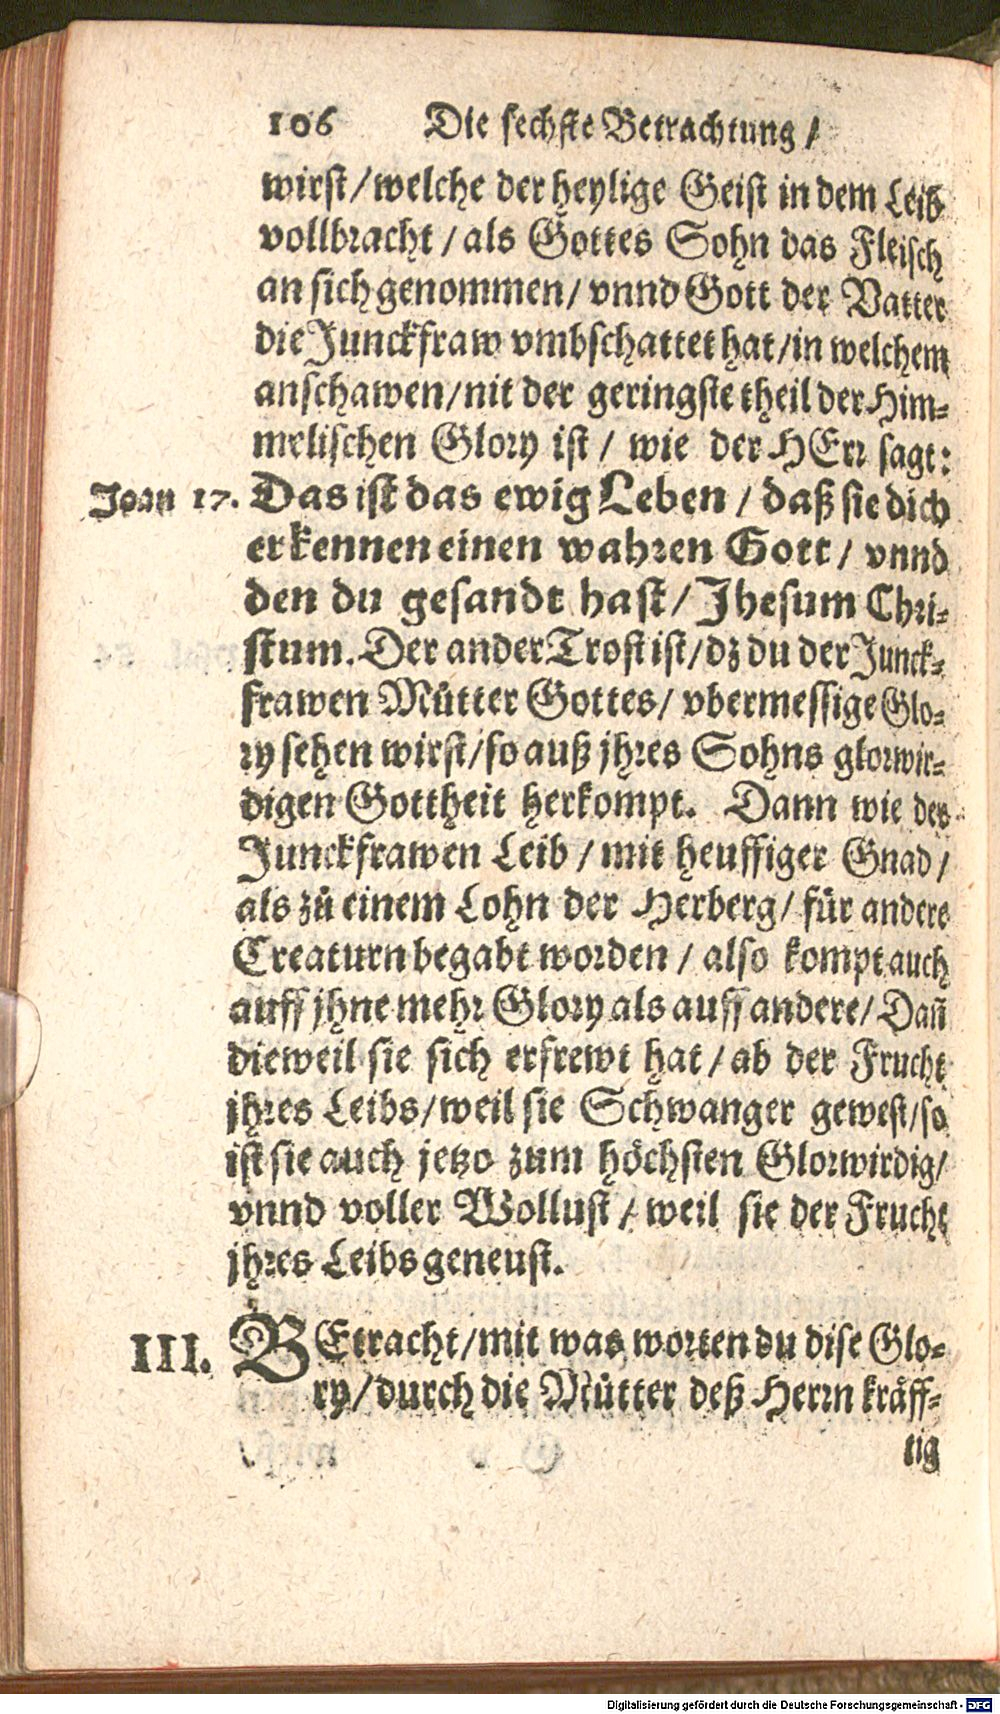 106 Die sechste Betrachtung /
wirst / welche der heylige Geist in dem Leib
vollbracht / als Gottes Sohn das Fleisch
an sich genommen / vnnd Gott der Vatter
die Junckfraw vmbschattet hat / in welchem
anschawen / nit der geringste theil der Him-
melischen Glory ist / wie der HErr sagt:
Joan 17. Das ist das ewig Leben / daß sie dich
erkennen einen wahren Gott / vnnd
den du gesandt hast / Jhesum Chri-
stum. Der ander Trost ist / dz du der Junck-
frawen Mütter Gottes / vbermessige Glo-
ry sehen wirst / so auß jhres Sohns glorwir-
digen Gottheit herkompt. Dann wie der
Junckfrawen Leib / mit heuffiger Gnad /
als zů einem Lohn der Herberg / für andere
Creaturn begabt worden / also kompt auch
auff jhne mehr Glory als auff andere / Dañ
dieweil sie sich erfrewt hat / ab der Frucht
jhres Leibs / weil sie Schwanger gewest / so
ist sie auch jetzo zum höchsten Glorwirdig /
vnnd voller Wollust / weil sie der Frucht
jhres Leibs geneust.
III. BEtracht / mit was worten du dise Glo-
ry / durch die Mütter deß Herrn kräff-
tig
Digitalisierung gefördert durch die Deutsche Forschungsgemeinschaft - DFG